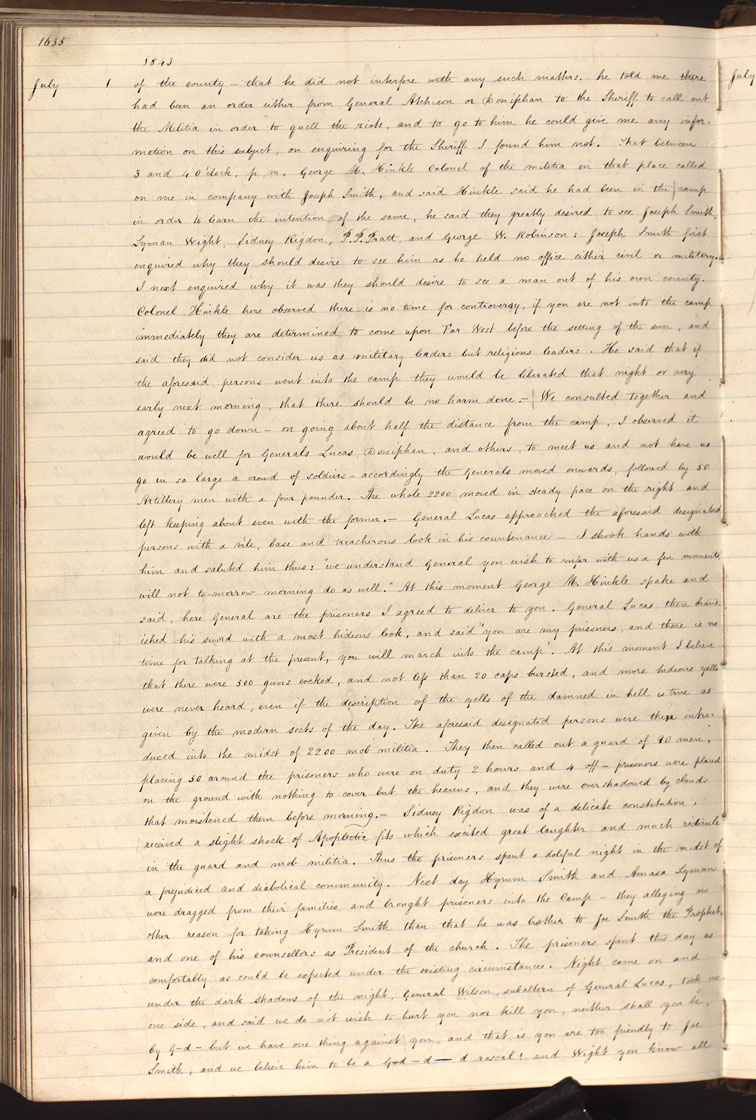 1635
1843
July 1 of the county — that he did not interfere with any such matters. he told me there July
had been an order either from General Atchison or Doniphan to the Sheriff to call out
the Militia in order to quell the riots, and to go to him he could give me any infor-
mation on this subject, on enquiring for the Sheriff I found him not. That between
3 and 4 o'clock, p.m. George M. Hinkle Colonel of the militia in that place called
on me in company with Joseph Smith, and said Hinkle said he had been in the camp
in order to learn the intention of the same, he said they greatly desired to see Joseph Smith,
Lyman Wight, Sidney Rigdon, P. P. Pratt, and George W. Robinson: Joseph Smith first
enquired why they should desire to see him as he held no office either civil or military.
I next enquired why it was they should desire to see a man out of his own county.
Colonel Hinkle here observed there is no time for controversy, if you are not into the camp
immediately they are determined to come upon Far West before the setting of the sun, and
said they did not consider us as military leaders but religious leaders. He said that if
the aforesaid persons went into the camp they would be liberated that night or very
early next morning, that there should be no harm done.— We consulted together and
agreed to go down — on going about half the distance from the camp, I observed it
would be well for Generals Lucas, Doniphan, and others, to meet us and not have us
go in so large a crowd of soldiers — accordingly the Generals moved onwards, followed by 50
Artillery men with a four pounder. The whole 2200 moved in steady pace on the right and
left keeping about even with the former.— General Lucas approached the aforesaid designated
persons with a vile, base and treacherous look in his countenance — I shook hands with
him and saluted him thus: "we understand General you wish to confer with us a few moments
will not to-morrow morning do as well." At this moment George M. Hinkle spake and
said, here General are the prisoners I agreed to deliver to you. General Lucas then brand
ished his sword with a most hideous look, and said "you are my prisoners, and there is no
time for talking at the present, you will march into the camp". At this moment I believe
that there were 500 guns cocked, and not less than 20 caps bursted, and more hideous yells
were never heard, even if the description of the yells of the damned in hell is true as
given by the modern sects of the day. The aforesaid designated persons were then intro-
duced into the midst of 2200 mob militia. They then called out a guard of 90 men,
placing 30 around the prisoners who were on duty 2 hours and 4 off — prisoners were placed
on the ground with nothing to cover but the heavens, and they were overshadowed by clouds
that moistened them before morning.— Sidney Rigdon was of a delicate constitution,
received a slight shock of Apoplectic fits which excited great laughter and much ridicule
in the guard and mob militia. Thus the prisoners spent a doleful night in the midst of
a prejudiced and diabolical community. Next day Hyrum Smith and Amasa Lyman
were dragged from their families and brought prisoners into the Camp — they alleging no
other reason for taking Hyrum Smith than that he was brother to Joe Smith the Prophet,
and one of his counsellors as President of the church. The prisoners spent this day as
comfortably as could be expected under the existing circumstances. Night came on and
under the dark shadows of the night, General Wilson, subaltern of General Lucas, took me
one side, and said we do not wish to hurt you nor kill you, neither shall you be,
by G—d — but we have one thing against you, and that is you are too friendly to Joe
Smith, and we believe him to be a G—d d—d rascal! and Wight you know all